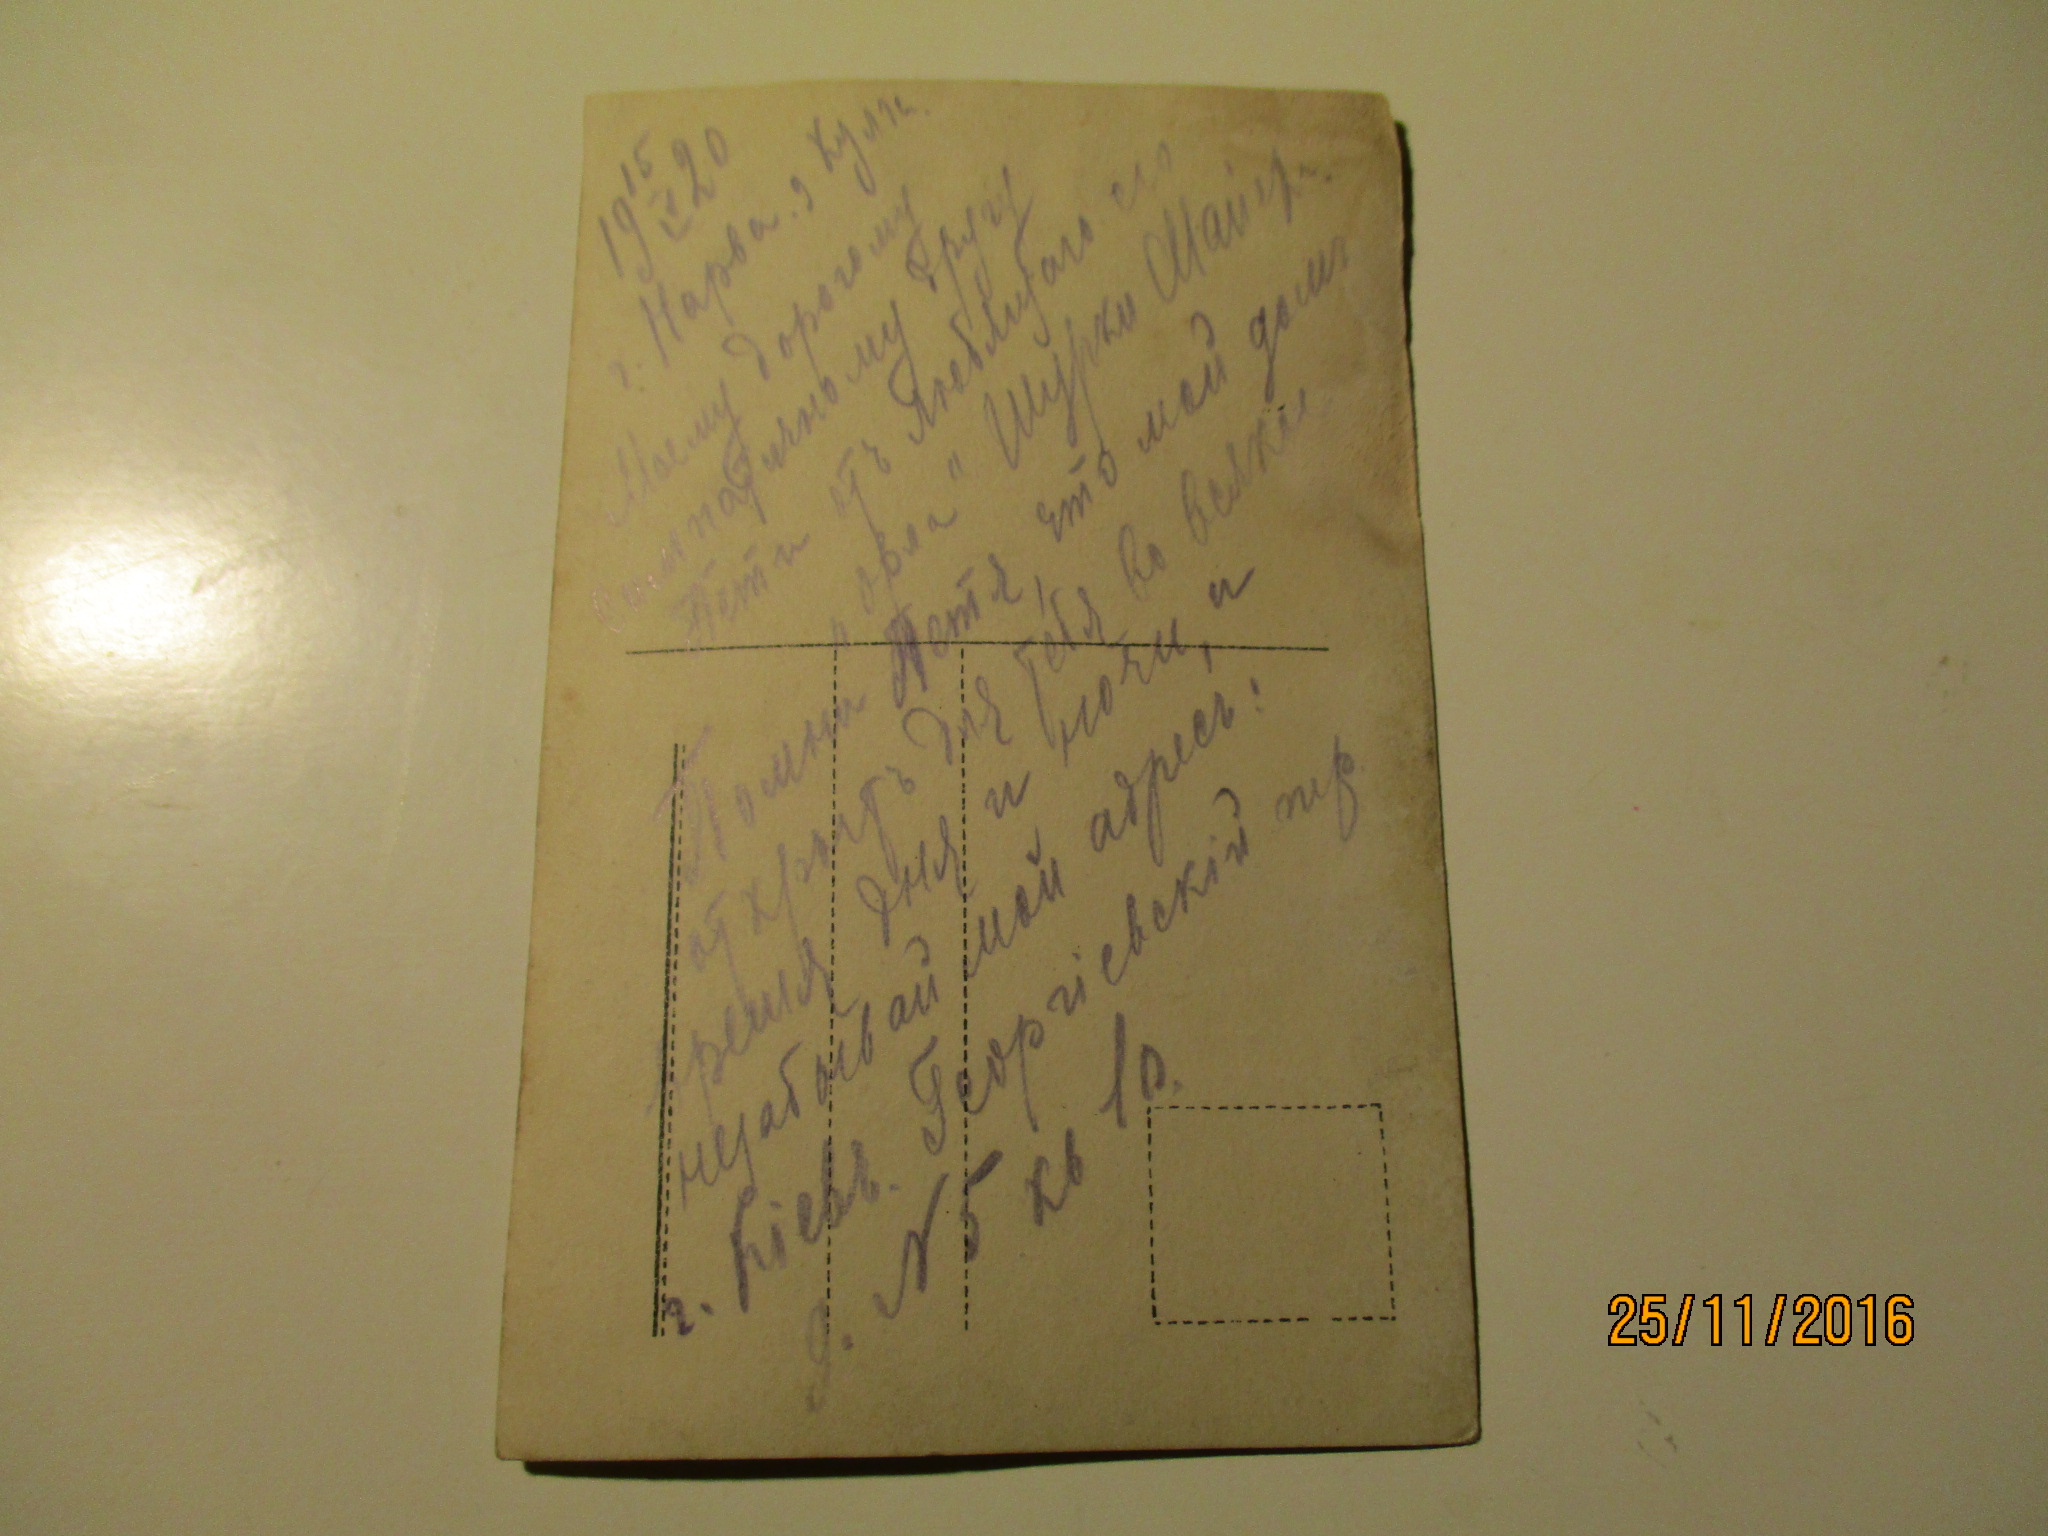 19 15/V 20
г. Нарва.
Моему дорогому
симпатичному другу
Пети отъ любящаго его
"орла" Шурки
Помни Петя, что мой домъ
открытъ для тебя во всякое
время дня и ночи, и
незабывай мой адресъ!
г. Кіевъ. Георгіевскій пер.
д. № 5 кв 10.
25/11/2016